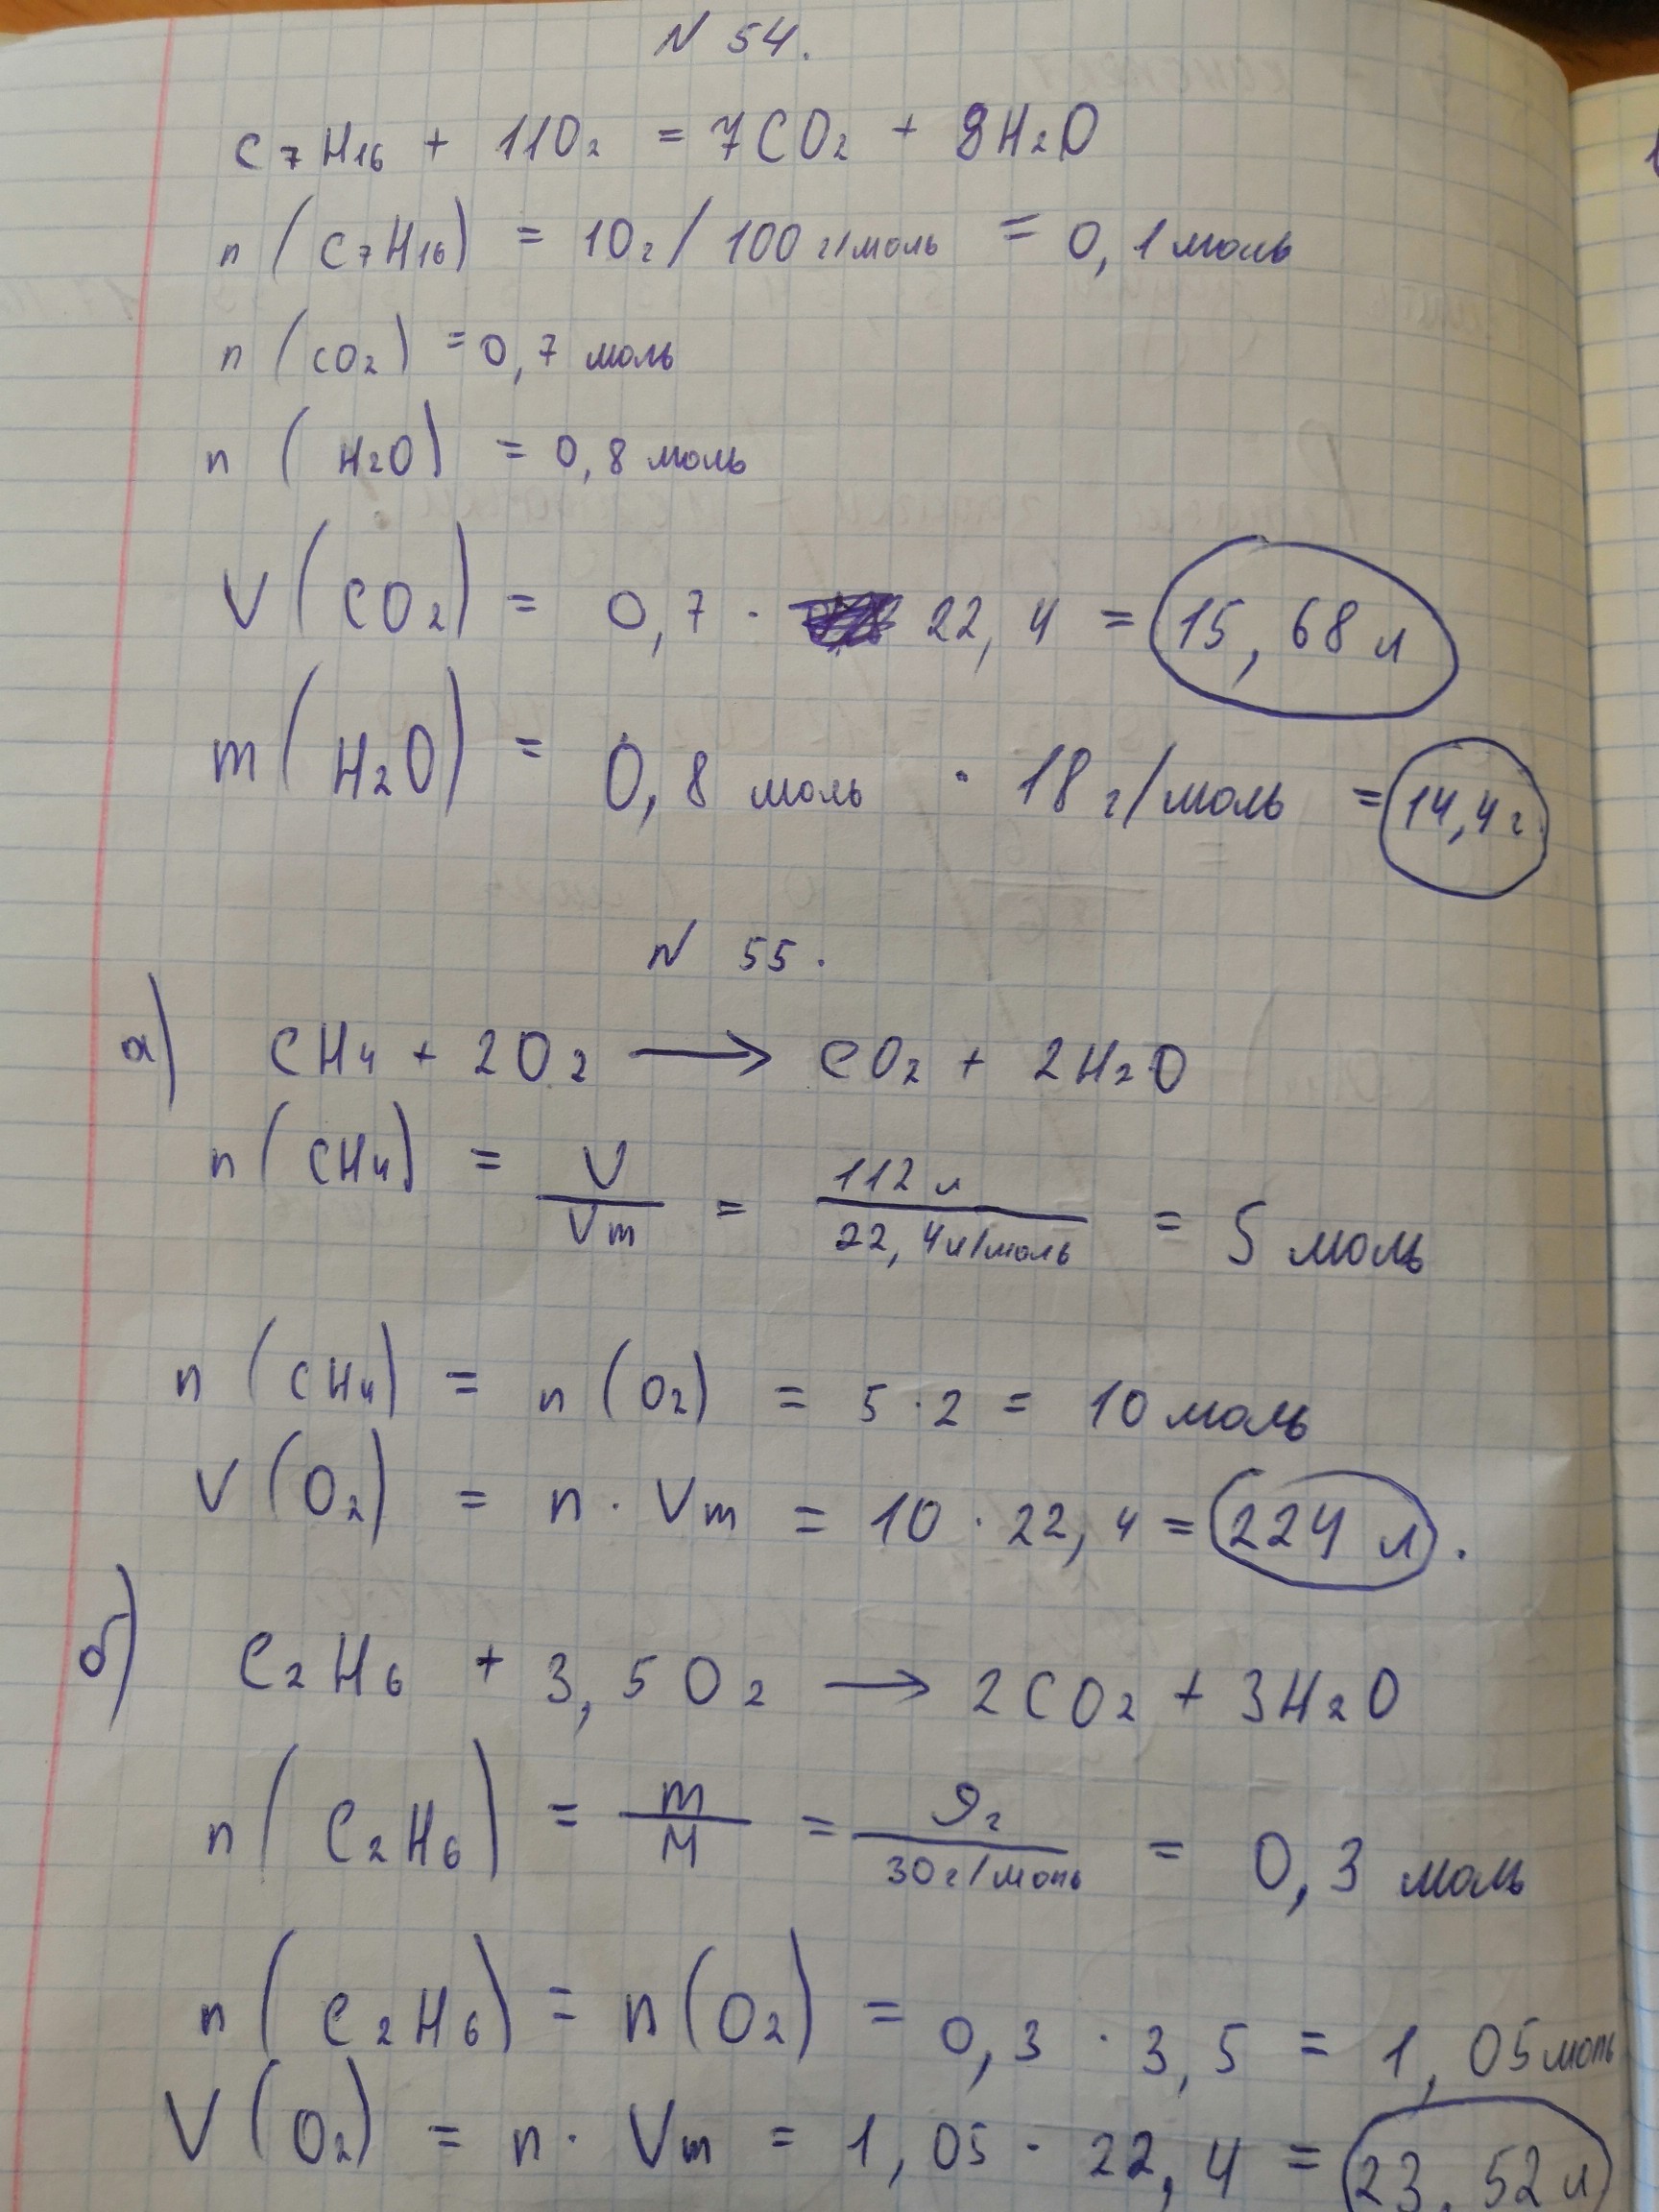 N 54.
C7H16 + 11O2 = 7CO2 + 8H2O
n (C7H16) = 10г/100 г/моль = 0,1 моль
n (CO2) = 0,7 моль
n (H2O) = 0,8 моль
V (CO2) = 0,7 · 22,4 = 15,68 л
m (H2O) = 0,8 моль · 18 г/моль = 14,4 г
N 55.
а) CH4 + 2O2 → CO2 + 2H2O
n (CH4) = V/Vm = 112 л/22,4 л/моль = 5 моль
n (CH4) = n (O2) = 5 · 2 = 10 моль
V (O2) = n · Vm = 10 · 22,4 = 224 л.
б) C2H6 + 3,5O2 → 2CO2 + 3H2O
n (C2H6) = m/M = 9г/30 г/моль = 0,3 моль
n (C2H6) = n (O2) = 0,3 · 3,5 = 1,05 моль
V (O2) = n · Vm = 1,05 · 22,4 = 23,52 л